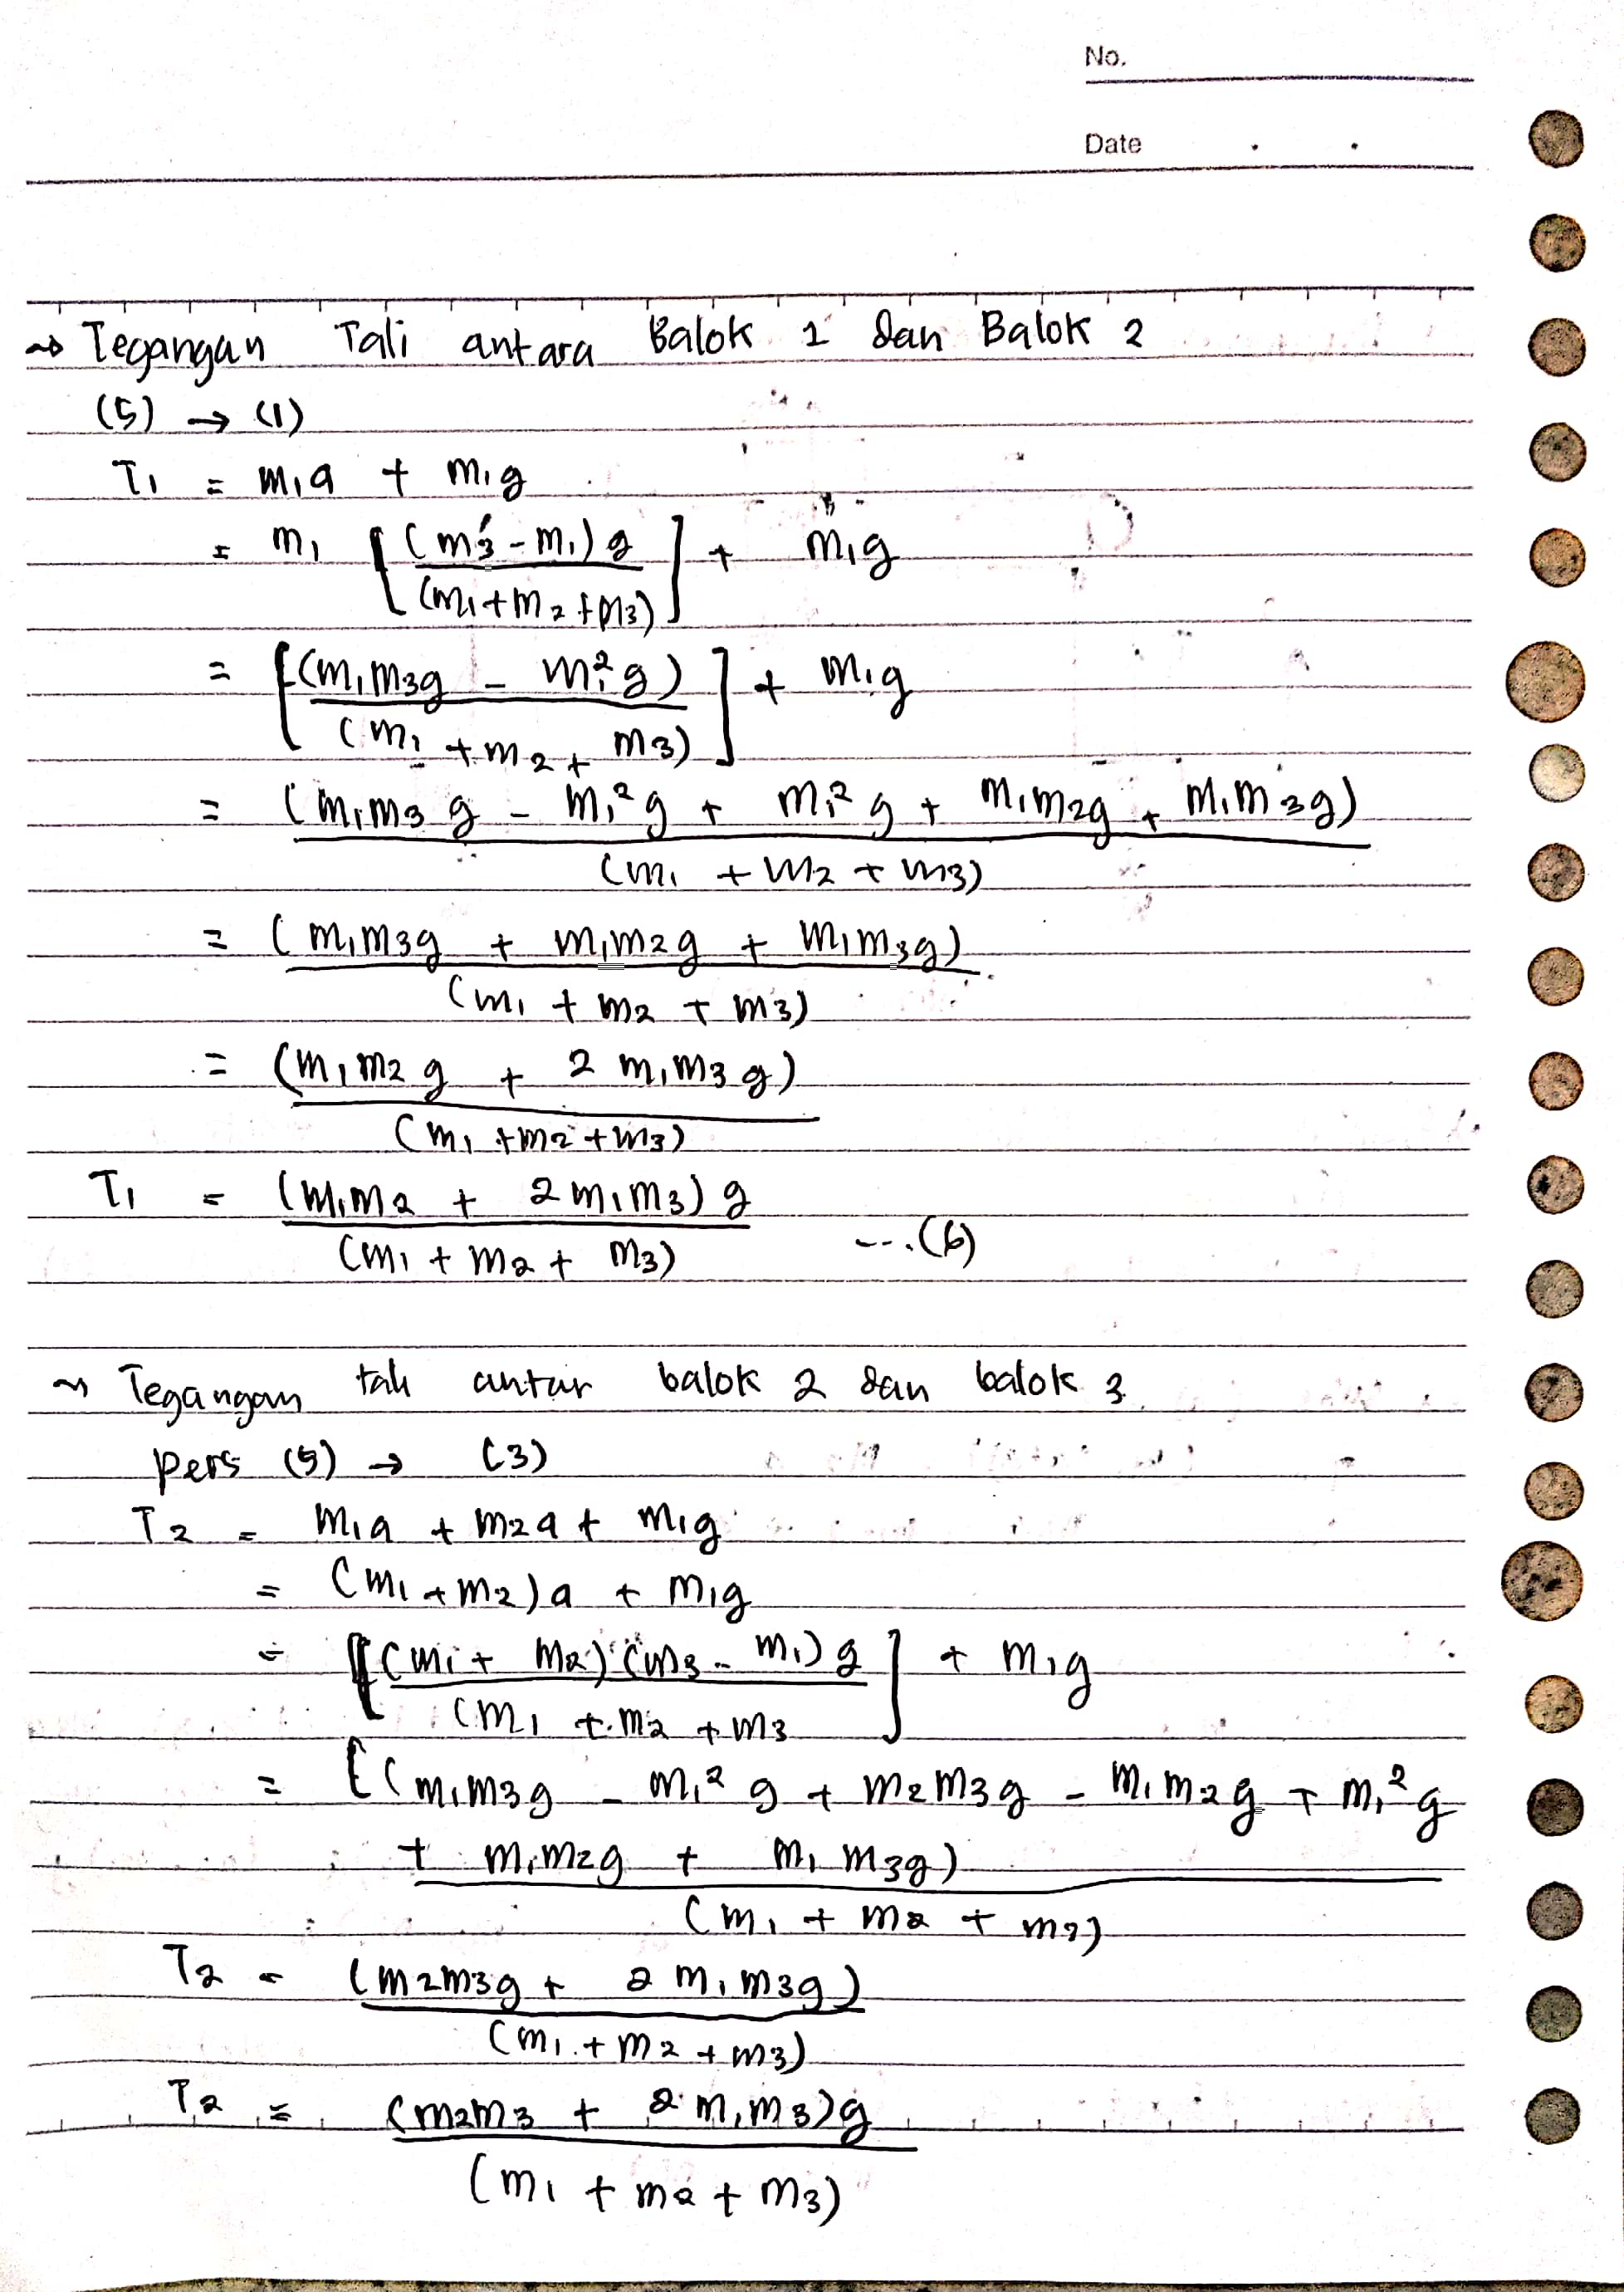 No.
Date
⇝ Tegangan Tali antara Balok 1 dan Balok 2
(5) → (1)
T₁ = m₁a + m₁g
= m₁ [ (m₃ - m₁) g / (m₁ + m₂ + m₃) ] + m₁g
= [ (m₁m₃g - m₁²g) / (m₁ + m₂ + m₃) ] + m₁g
= (m₁m₃g - m₁²g + m₁²g + m₁m₂g + m₁m₃g)
(m₁ + m₂ + m₃)
= (m₁m₃g + m₁m₂g + m₁m₃g)
(m₁ + m₂ + m₃)
= (m₁m₂g + 2 m₁m₃g)
(m₁ + m₂ + m₃)
T₁ = (m₁m₂ + 2 m₁m₃) g
(m₁ + m₂ + m₃) ...(6)
~ Tegangan tali antar balok 2 dan balok 3
pers (5) → (3)
T₂ = m₁a + m₂a + m₁g
= (m₁ + m₂)a + m₁g
= [ (m₁ + m₂) (m₃ - m₁) g / (m₁ + m₂ + m₃ ] + m₁g
= [(m₁m₃g - m₁²g + m₂m₃g - m₁m₂g + m₁²g
+ m₁m₂g + m₁m₃g)
(m₁ + m₂ + m₃)
T₂ = (m₂m₃g + 2 m₁m₃g)
(m₁ + m₂ + m₃)
T₂ = (m₂m₃ + 2 m₁m₃)g
(m₁ + m₂ + m₃)